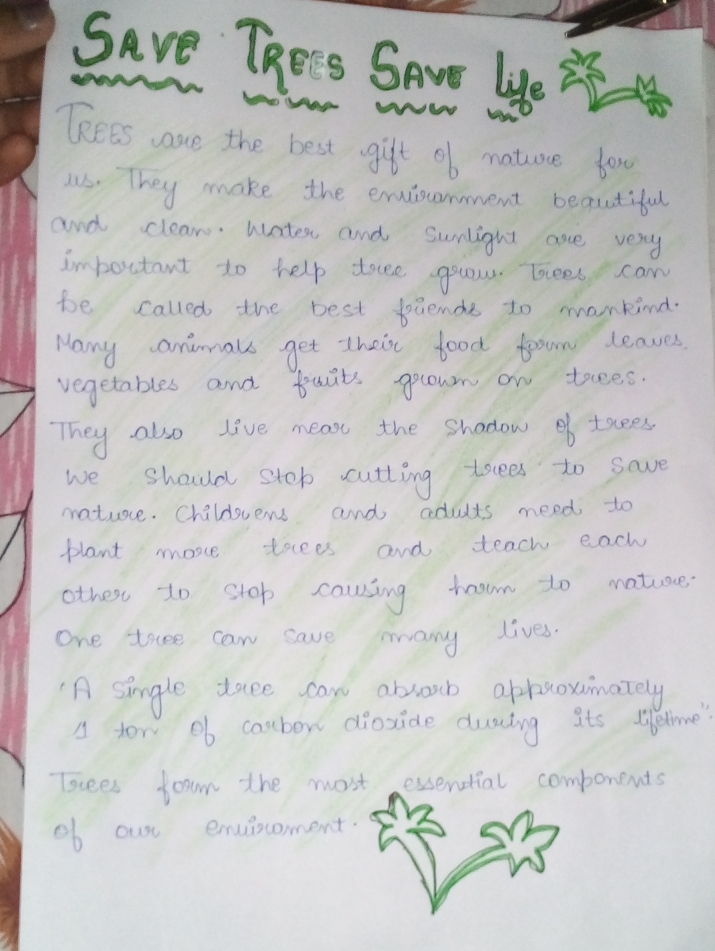 SAVE TREES SAVE Life
TREES are the best gift of nature for
us. They make the environment beautiful
and clean. Water and Sunlight are very
important to help tree grow. Trees can
be called the best friends to mankind.
Many animals get their food form leaves
vegetables and fruits grown on trees.
They also live near the shadow of trees.
We should stop cutting trees to save
nature. Childrens and adults need to
plant more trees and teach each
other to stop causing harm to nature.
One tree can save many lives.
'A single tree can absorb approximately
1 ton of carbon dioxide during its lifetime".
Trees form the most essential components
of our enviroment.